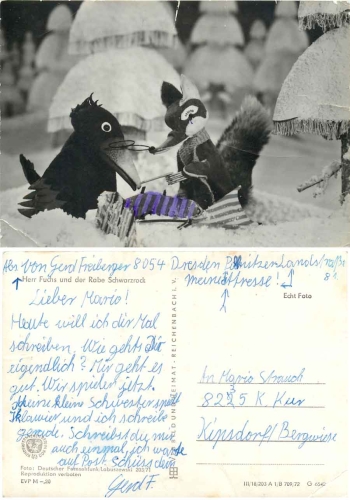 Abs von Gerd Freiberger 8054 Dresden
meine Adresse!
Herr Fuchs und der Rabe Schwarzrock
Echt Foto
Lieber Mario!
Heute will ich dir Mal
schreiben. Wie gehts Dir
eigendlich? Mir geht es
gut. Wir spielen jetzt
kleine Schwester spielt
Klavier und ich schreibe
gerade. Schreibst du mir
auch einmal, ich warte
auf Post. Schüss dein
Gerd F.
An Mario Strauch
8225 K. Kur
Kipsdorf/Bergwiese
BILD UND HEIMAT REICHENBACH I. V.
Foto: Deutscher Fernsehfunk
Reproduktion verboten
EVP M -,20
III/18/203 A 1/B 709/72